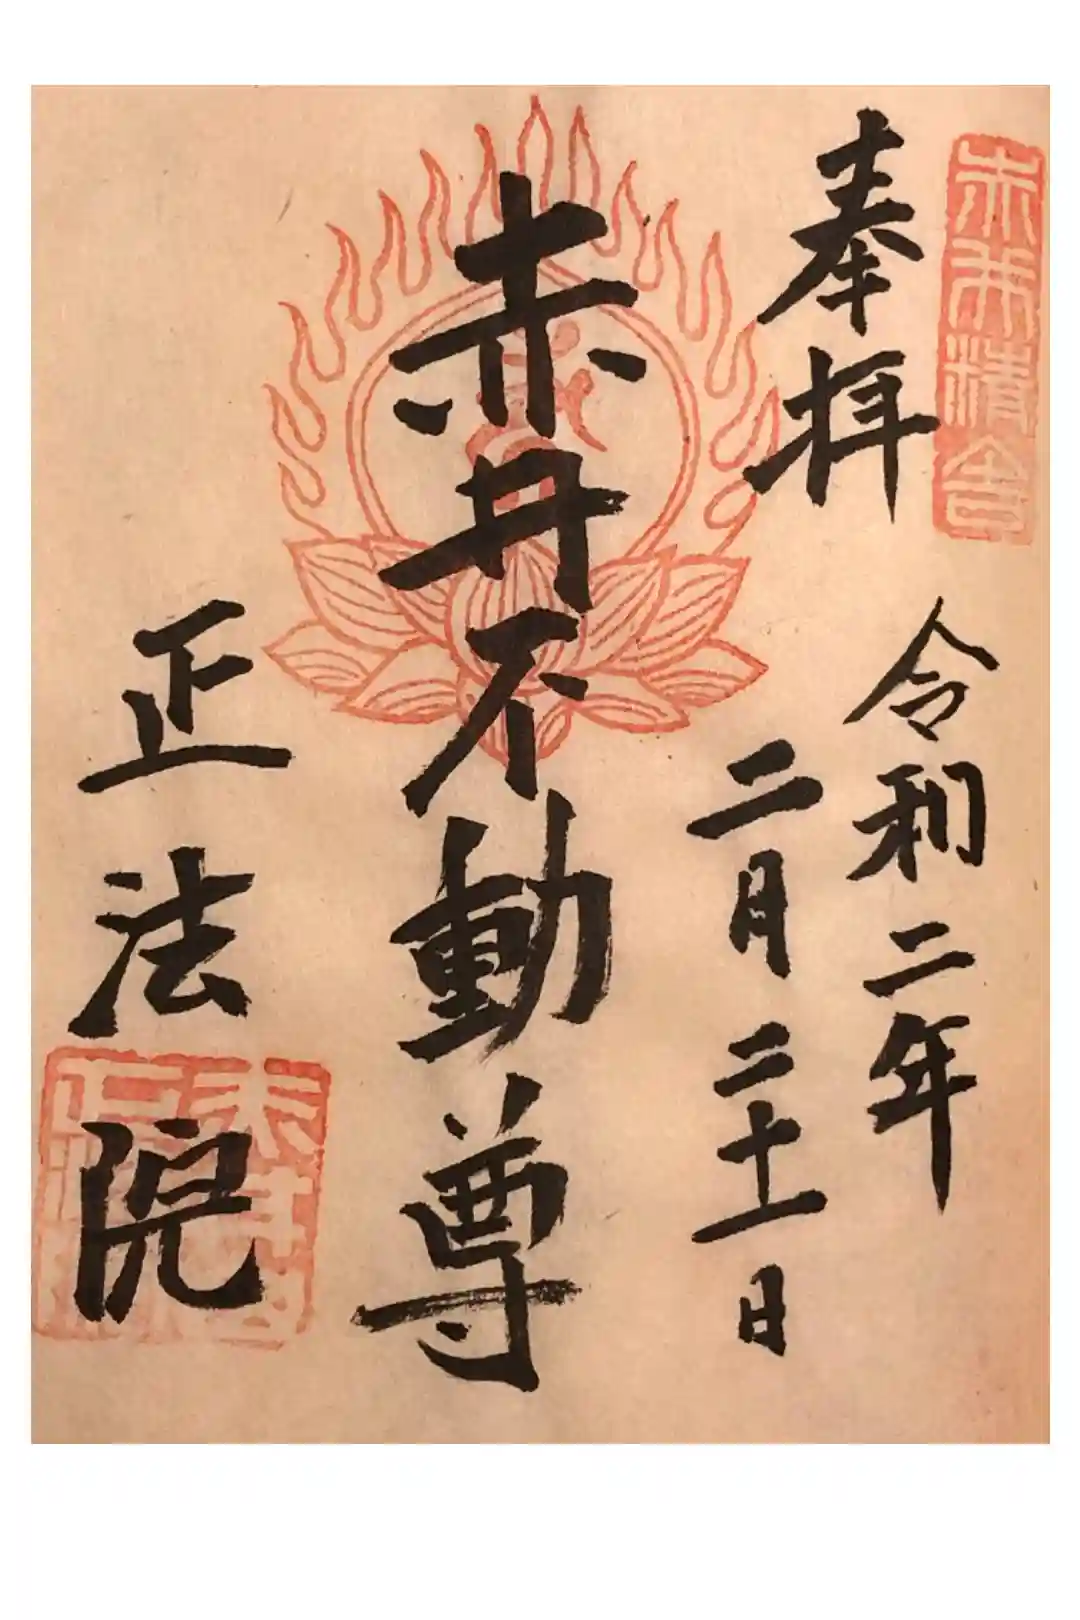 奉拝
令和二年
二月二十一日
赤井不動尊
正法院